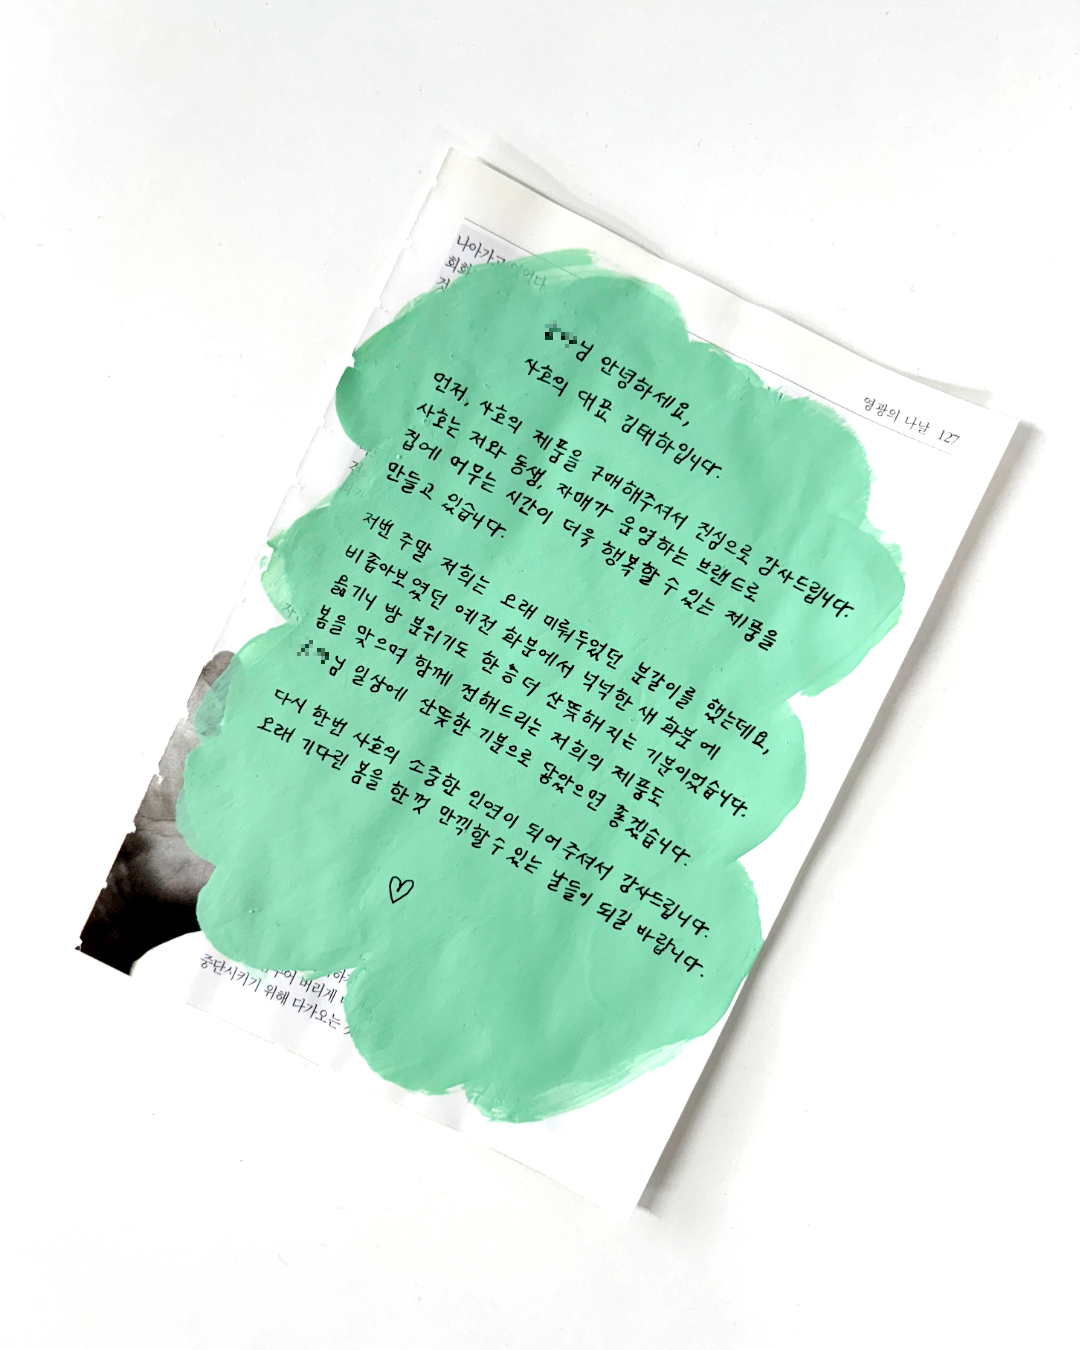 나아가고
회화
것
영광의 나날 127
님 안녕하세요,
사호의 대표 김태하입니다.
먼저, 사호의 제품을 구매해주셔서 진심으로 감사드립니다.
사호는 저와 동생, 자매가 운영하는 브랜드로
집에 머무는 시간이 더욱 행복할 수 있는 제품을
만들고 있습니다.
저번 주말 저희는 오래 미뤄두었던 분갈이를 했는데요,
비좁아보였던 예전 화분에서 넉넉한 새 화분에
옮기니 방 분위기도 한층 더 산뜻해지는 기분이었습니다.
봄을 맞으며 함께 전해드리는 저희의 제품도
님 일상에 산뜻한 기분으로 닿았으면 좋겠습니다.
다시 한번 사호의 소중한 인연이 되어주셔서 감사드립니다.
오래 기다린 봄을 한껏 만끽할 수 있는 날들이 되길 바랍니다.
버리게
중단시키기 위해 다가오는